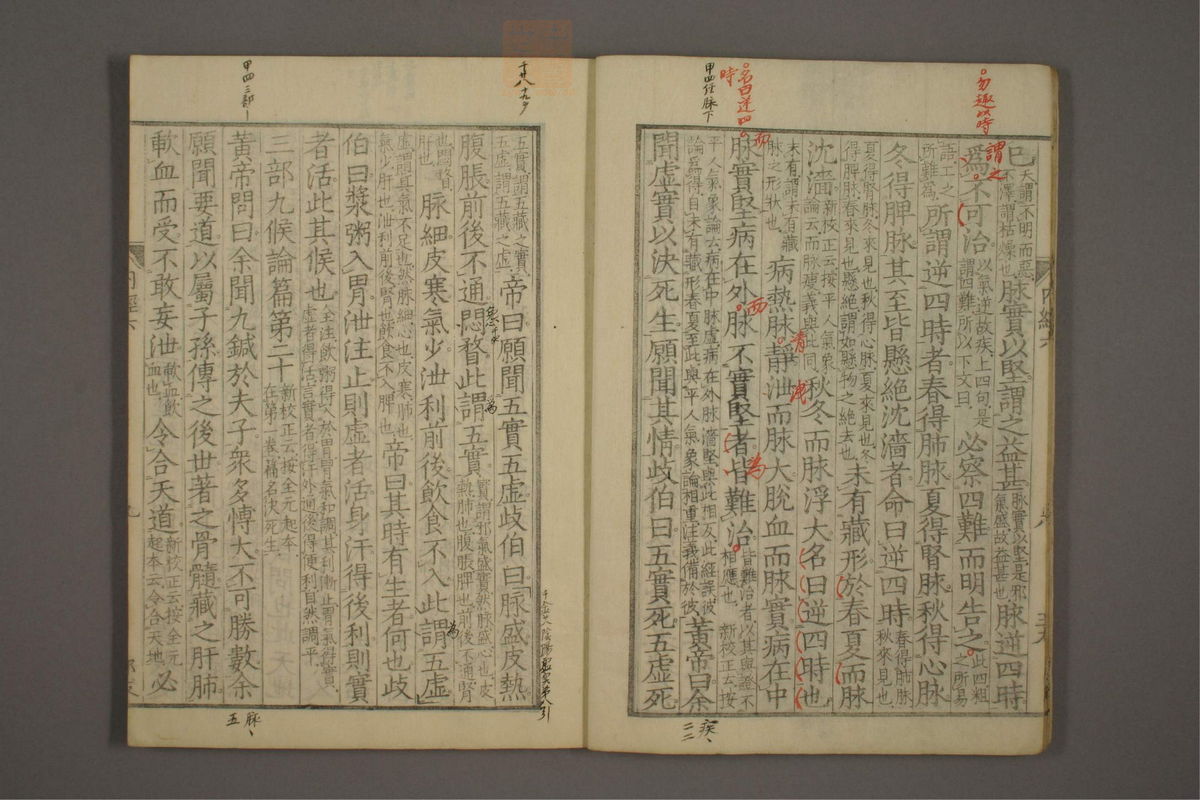 勿趣以時
謂之
已天謂不明而惡不澤謂枯燥也脉實以堅謂之益甚脉實以堅是邪氣盛故益甚也脉逆四時
爲不可治以氣逆故疾上四句是謂四難所以下文曰必察四難而明告之此四粗之所易
語工之所難為所謂逆四時者春得肺脉夏得腎脉秋得心脉
冬得脾脉其至皆懸絕沈濇者命曰逆四時春得肺脉秋來見也
夏得腎脉冬來見也秋得心脉夏來見也冬得脾脉春來見也懸絕謂如懸物之絕去也未有藏形於春夏而脉
沈濇新校正云按平人氣象論云而脉瘦義與此同秋冬而脉浮大名曰逆四時也
未有謂未有藏脉之形狀也病熱脉靜泄而脉大脫血而脉實病在中
脉實堅病在外脉不實堅者皆難治皆難治者以其與證不相應也新校正云按
平人氣象論云病在中脉虛病在外脉濇堅與此相反此經誤彼論為得自未有藏形春夏至此與平人氣象論相重注義備於彼黃帝曰余
聞虛實以決死生願聞其情歧伯曰五實死五虛死
名曰逆四時
甲四經脉下
而
而
為
五實謂五藏之實五虛謂五藏之虛帝曰願聞五實五虛歧伯曰脉盛皮熱
腹脹前後不通悶瞀此謂五實實謂邪氣盛實然脉盛心也皮熱肺也腹脹脾也前後不通腎
也悶瞀肝也脉細皮寒氣少泄利前後飲食不入此謂五虛
虛謂真氣不足也然脉細心也皮寒肺也氣少肝也泄利前後腎也飲食不入脾也帝曰其時有生者何也歧
伯曰漿粥入胃泄注止則虛者活身汗得後利則實
者活此其候也全注飲粥得入於胃胃氣和調其利漸止胃氣得實虛者得活言實者得汗外通後得便利自然調平
三部九候論篇第二十新校正云按全元起本在第一卷篇名決死生
黃帝問曰余聞九鍼於夫子衆多博大不可勝數余
願聞要道以屬子孫傳之後世著之骨髓藏之肝肺
歃血而受不敢妄泄歃血飲血也令合天道新校正云按全元起本云令合天地必
甲四三部